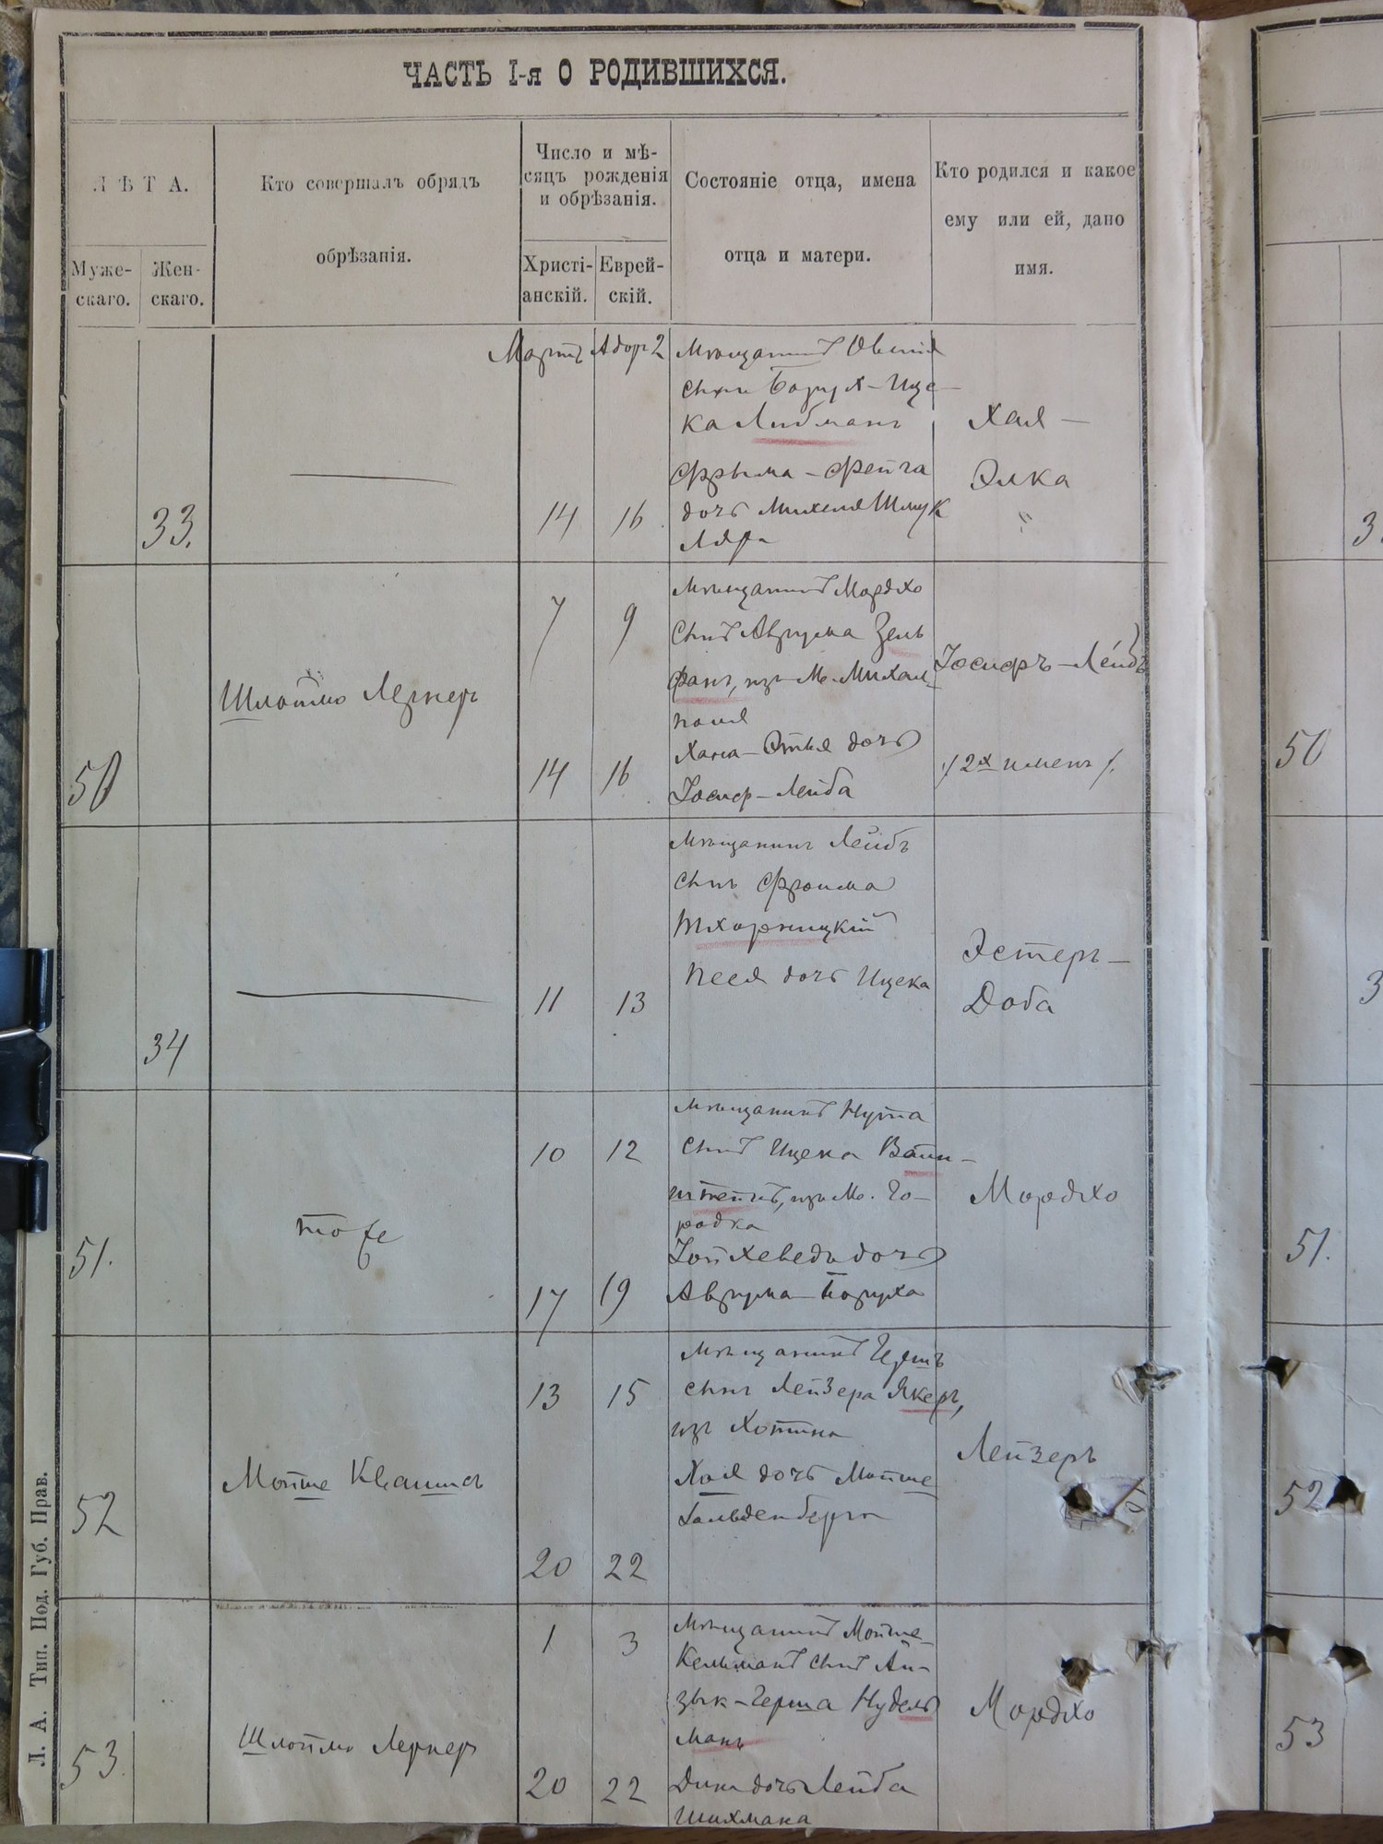 ЧАСТЬ I-я О РОДИВШИХСЯ.
ЛѢТА.
Муже-
скаго.
Жен-
скаго.
Кто совершалъ обрядъ
обрѣзанія.
Число и мѣ-
сяцъ рожденія
и обрѣзанія.
Христі-
анскій.
Еврей-
скій.
Состояніе отца, имена
отца и матери.
Кто родился и какое
ему или ей, дано
имя.
Мартъ
Адоръ 2
33.
14
16
Мѣщанинъ Овшія
сынъ Борух-Ице-
ка Либманъ
Фрыма-Фейга
дочь Михеля Шмук
Ляра
Хая-
Элка
50
Шлоймо Лернеръ
7
9
14
16
Мѣщанинъ Мордхо
сынъ Аврума Зель
манъ, изъ М. Михал-
поля
Хана-Этля дочь
Іосиф-Лейба
Іосифъ-Лейбъ
/2х именъ/.
34
11
13
Мѣщанинъ Лейбъ
сынъ Фроима
Тхорницкій
Песя дочь Ицека
Эстеръ-
Доба
51.
тоже
10
12
17
19
Мѣщанинъ Нута
сынъ Ицека Вайн-
штейнъ, изъ М. Го-
родка
Іойхеведъ дочь
Аврума-Боруха
Мордхо
52
Мойше Квашша
13
15
20
22
Мѣщанинъ Гершъ
сынъ Лейзера Якеръ,
изъ Хотина
Хая дочь Мойше
Гольденберга
Лейзеръ
53.
Шлоймо Лернеръ
1
3
20
22
Мѣщанинъ Мойше-
Кельманъ сынъ Ай-
зык-Герша Нудель
манъ
Дина дочь Лейба
Шихмана
Мордхо
Л. А. Тип. Под. Губ. Прав.
3
50
3
51.
52
53